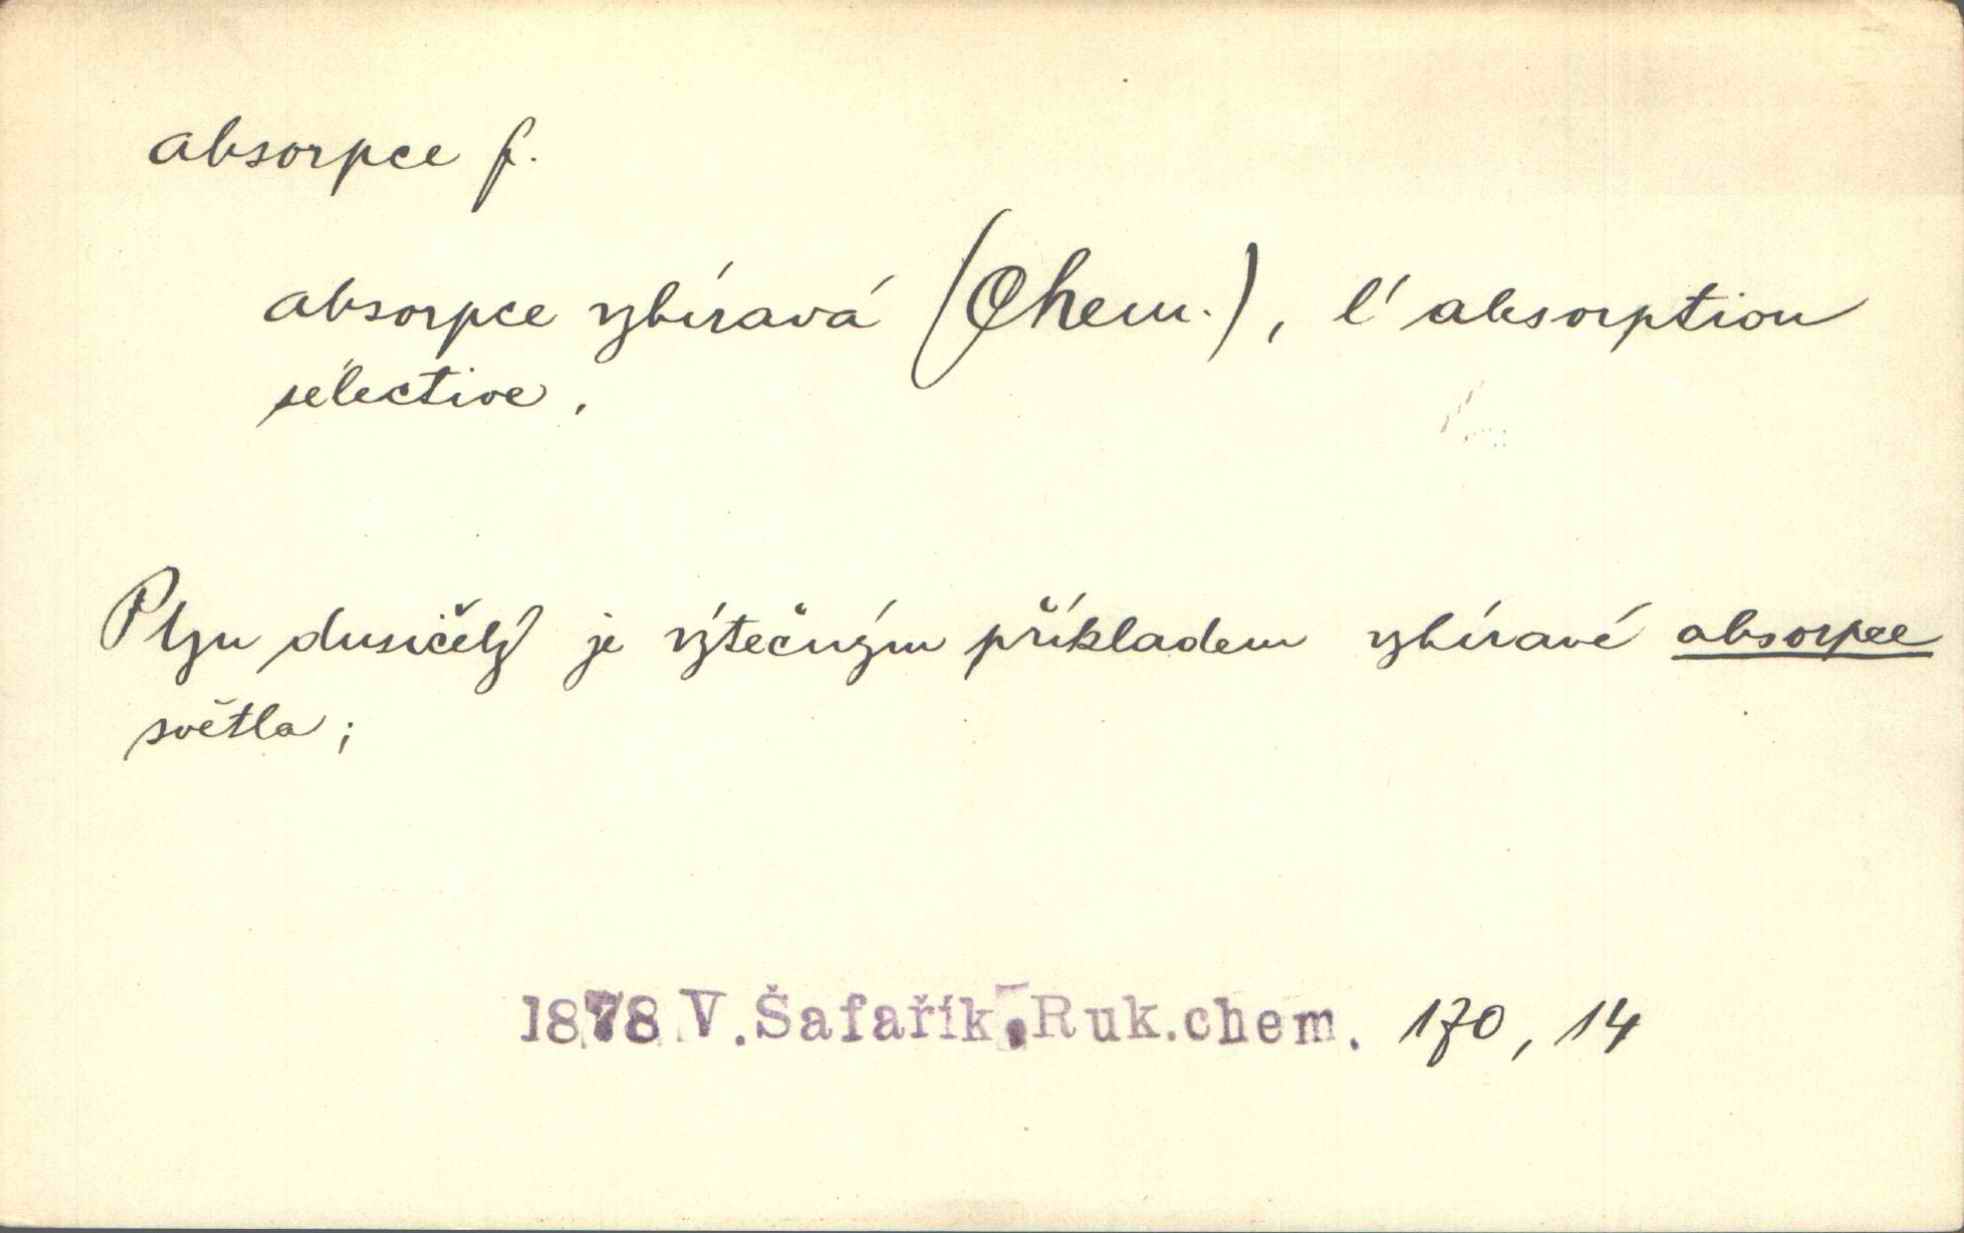 absorpce f.
absorpce vybíravá (Chem.), l'absorption
sélective.
Plyn dusičelý je výtečným příkladem vybíravé absorpce
světla;
1878 V. Šafařík, Ruk.chem. 170, 14